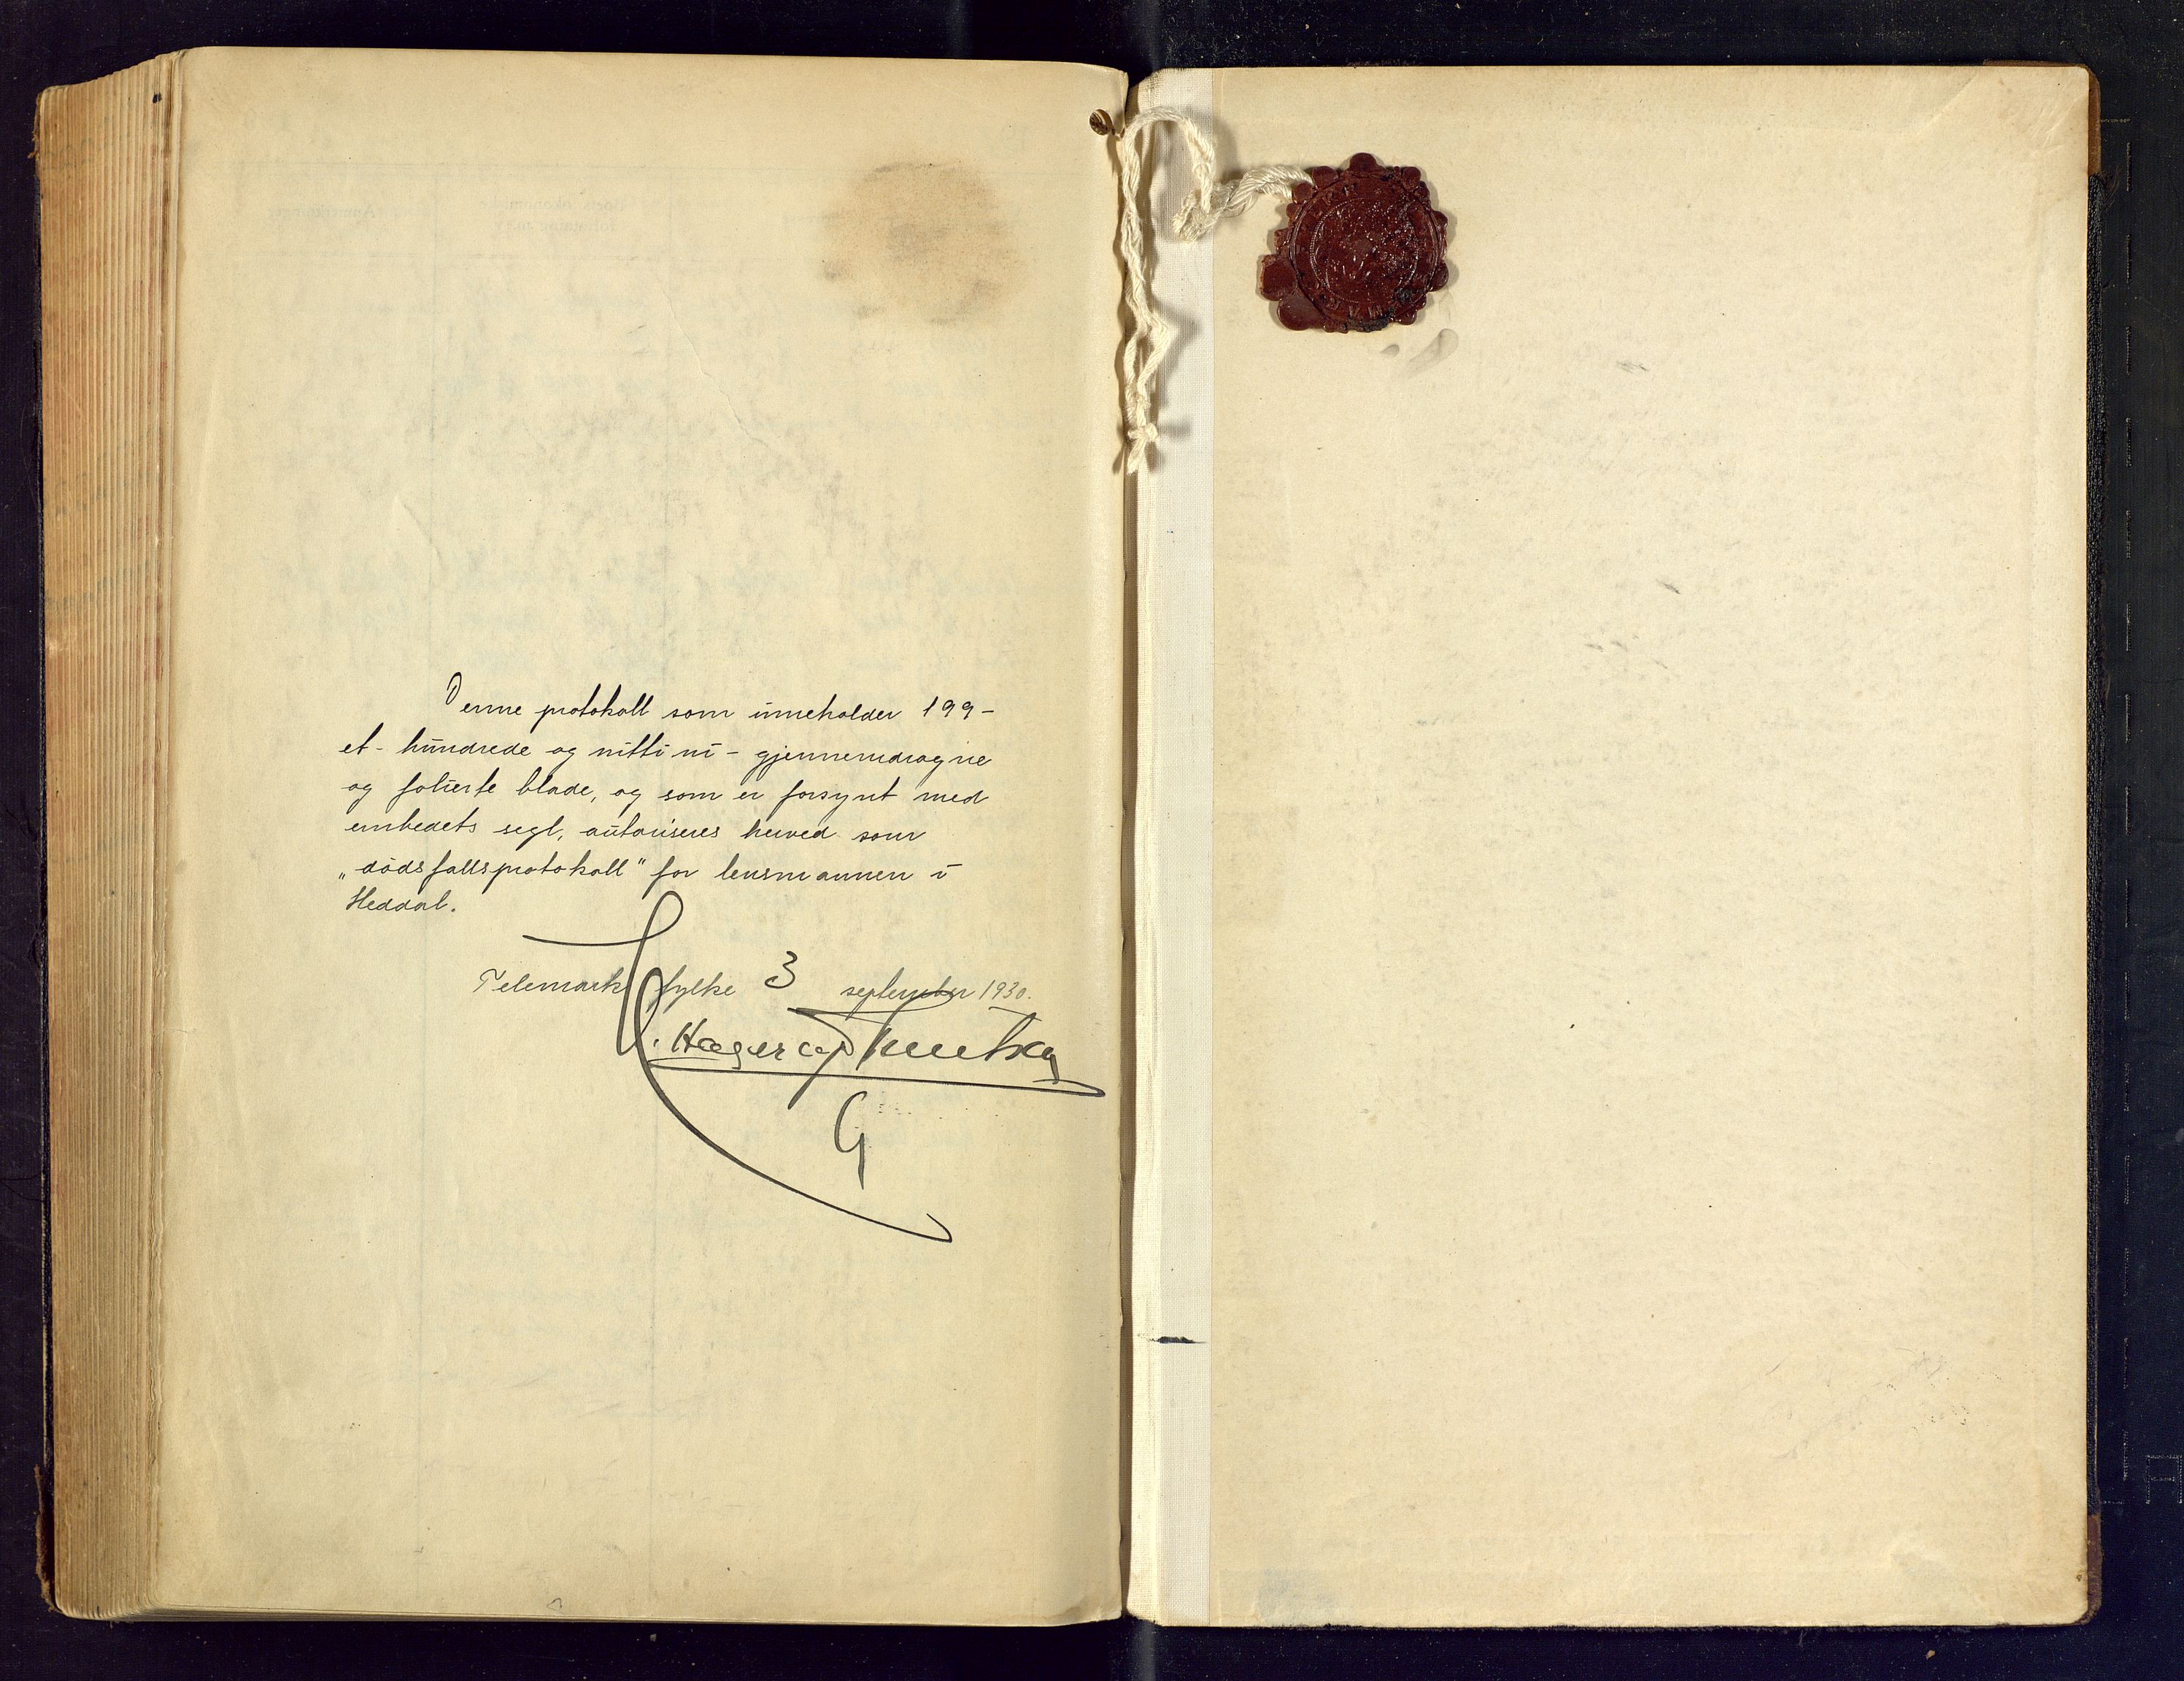 Denne protokoll som inneholder 199-
et- hundrede og nitti ni - gjennemdragne
og folierte blade, og som er forsynt med
embedets segl, autoriseres herved som
„dødsfallsprotokoll" for lensmannen i
Heddal.
Telemark fylke 3 september 1930.
G